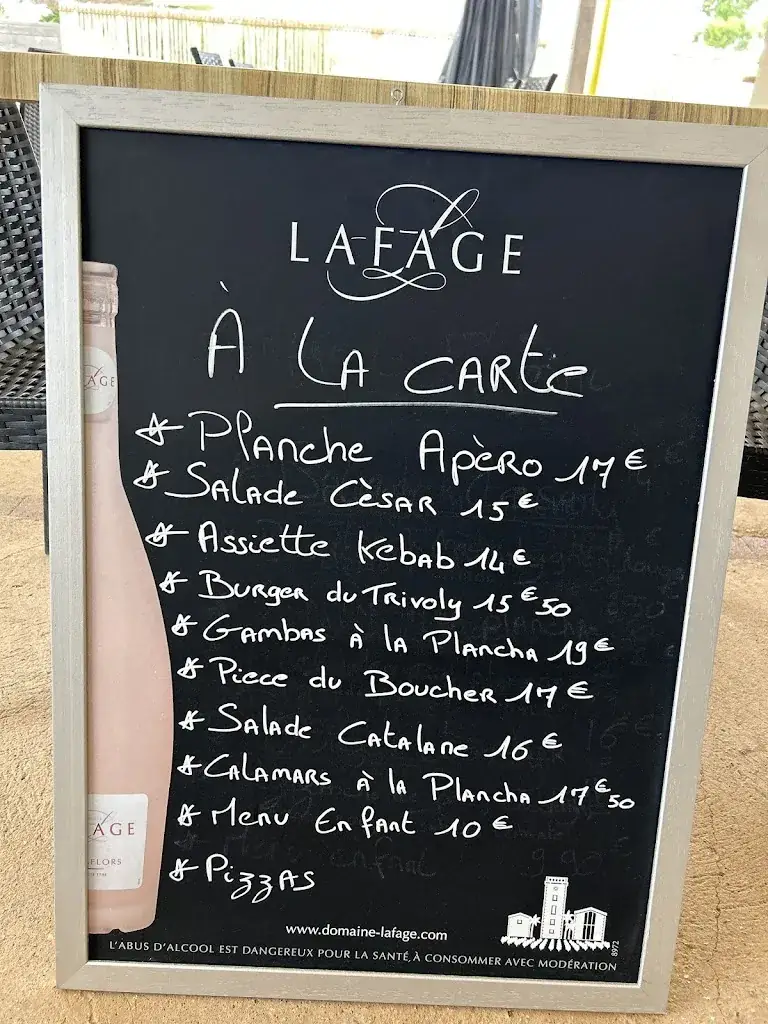 LAFAGE
À LA CARTE
* Planche Apèro 17€
* Salade Cèsar 15€
* Assiette Kebab 14€
* Burger du Trivoly 15€50
* Gambas à la Plancha 19€
* Piece du Boucher 17€
* Salade Catalane 16€
* Calamars à la Plancha 17€50
* Menu Enfant 10€
* Pizzas
AGE
AGE
FLORS
www.domaine-lafage.com
L'ABUS D'ALCOOL EST DANGEREUX POUR LA SANTÉ, À CONSOMMER AVEC MODÉRATION
8972